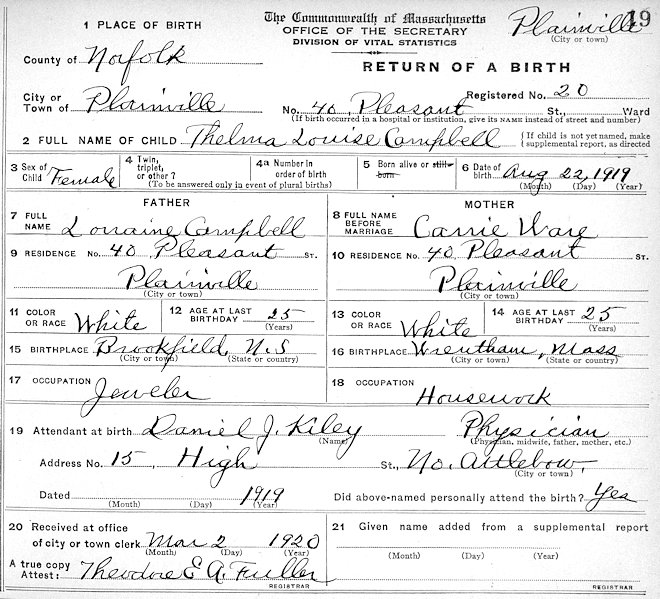 The Commonwealth of Massachusetts
OFFICE OF THE SECRETARY
DIVISION OF VITAL STATISTICS
RETURN OF A BIRTH
Plainville 19
(City or town)
1 PLACE OF BIRTH
County of Norfolk
Registered No. 20
City or Town of Plainville No. 40 Pleasant St., Ward
(If birth occurred in a hospital or institution, give its NAME instead of street and number)
2 FULL NAME OF CHILD Thelma Louise Campbell { If child is not yet named, make supplemental report, as directed
3 Sex of Child Female 4 Twin, triplet, or other? 4a Number in order of birth 5 Born alive or still-born 6 Date of birth Aug 22, 1919
(To be answered only in event of plural births) (Month) (Day) (Year)
FATHER MOTHER
7 FULL NAME Lorraine Campbell 8 FULL NAME BEFORE MARRIAGE Carrie Ware
9 RESIDENCE No. 40 Pleasant ST. 10 RESIDENCE No. 40 Pleasant ST.
Plainville Plainville
(City or town) (City or town)
11 COLOR OR RACE White 12 AGE AT LAST BIRTHDAY 25 (Years) 13 COLOR OR RACE White 14 AGE AT LAST BIRTHDAY 25 (Years)
15 BIRTHPLACE Brookfield, N.S 16 BIRTHPLACE Wrentham, Mass
(City or town) (State or country) (City or town) (State or country)
17 OCCUPATION Jeweler 18 OCCUPATION Housework
19 Attendant at birth Daniel J. Kiley Physician
(Name) (Physician, midwife, father, mother, etc.)
Address No. 15 High St., No. Attleboro.
(City or town)
Dated 1919 Did above-named personally attend the birth? Yes
(Month) (Day) (Year)
20 Received at office of city or town clerk Mar 2 1920 21 Given name added from a supplemental report
(Month) (Day) (Year) (Month) (Day) (Year)
A true copy Attest: Theodore E A. Fuller
REGISTRAR REGISTRAR